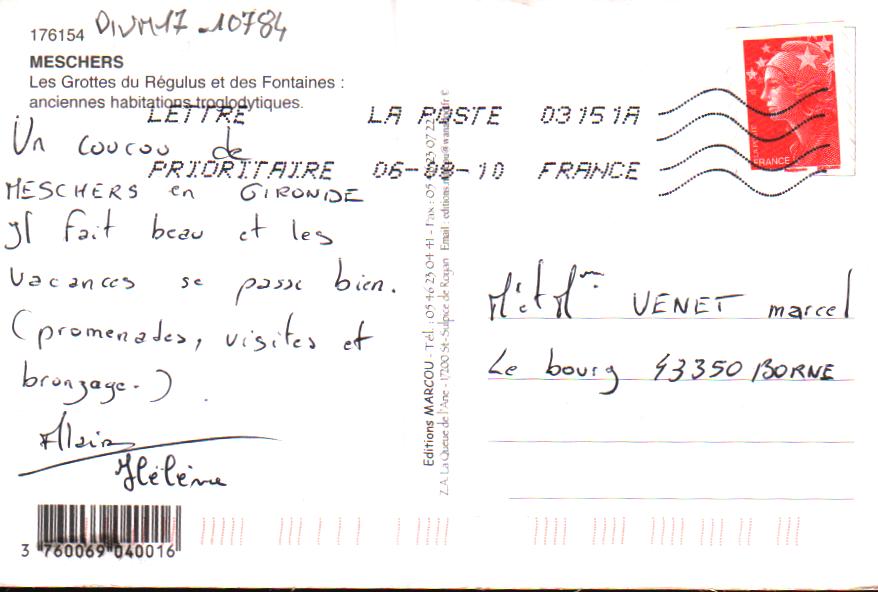 176154 DIVM17-10784
MESCHERS
Les Grottes du Régulus et des Fontaines :
anciennes habitations troglodytiques.
LETTRE LA POSTE 03151A
PRIORITAIRE 06-08-10 FRANCE
Un coucou de
MESCHERS en GIRONDE
Il fait beau et les
vacances se passe bien.
(promenades, visites et
bronzage.)
Alain
Hélène
Editions MARCOU - Tél. : 05 46 23 04 41 - Fax : 05
Z.A. La Queue de l'Ane - 17200 St-Sulpice de Royan Email : editions
LA POSTE
FRANCE
Mr et Mme VENET marcel
Le bourg 43350 BORNE
3 760069 040016